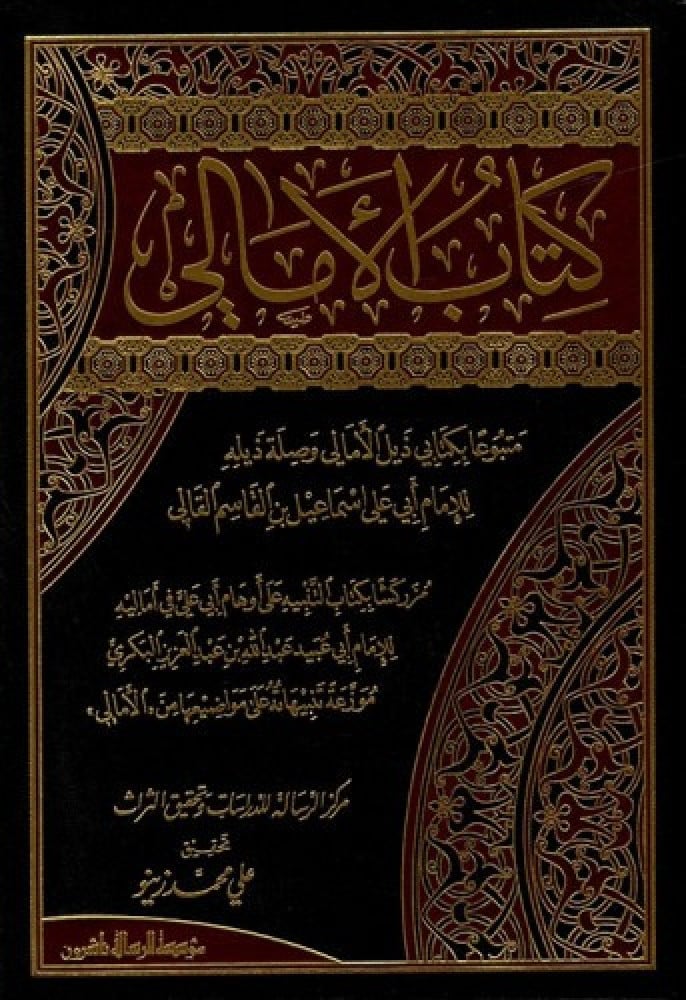 كِتَابُ الأَمَالِي
مَتبُوعًا بِكِتَابَي ذَيلِ الأَمَالي وَصِلَة ذَيلِهِ
لِلإِمَامِ أَبي عَلي إِسْمَاعِيل بنِ القَاسِم القَالي
مُزَركشًا بِكتَابِ التَّنْبِيهِ عَلىٰ أَوهَامِ أَبي عَليٍّ في أمَاليهِ
لِلإِمَامِ أَبي عُبَيد عَبْدِ اللهِ بنِ عَبْدِ العَزيزِ البَكريِّ
مُوَزَّعَةً تَنبِيهَاتُهُ عَلىٰ مَوَاضِيعِهَا مِنَ «الأَمَالي»
مركز الرسالة للدراسات وتحقيق التراث
تحقيق
علي محمد زينو
مؤسسة الرسالة ناشرون